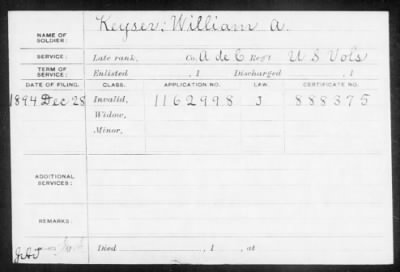 NAME OF SOLDIER: Keyser, William A.
SERVICE: Late rank, Co. A de C Reg't U S Vols
TERM OF SERVICE: Enlisted , 1 Discharged , 1
DATE OF FILING. CLASS. APPLICATION NO. LAW. CERTIFICATE NO.
1894 Dec 28 Invalid, 1162998 J 888375
Widow,
Minor,
ADDITIONAL SERVICES:
REMARKS:
Died , 1 , at